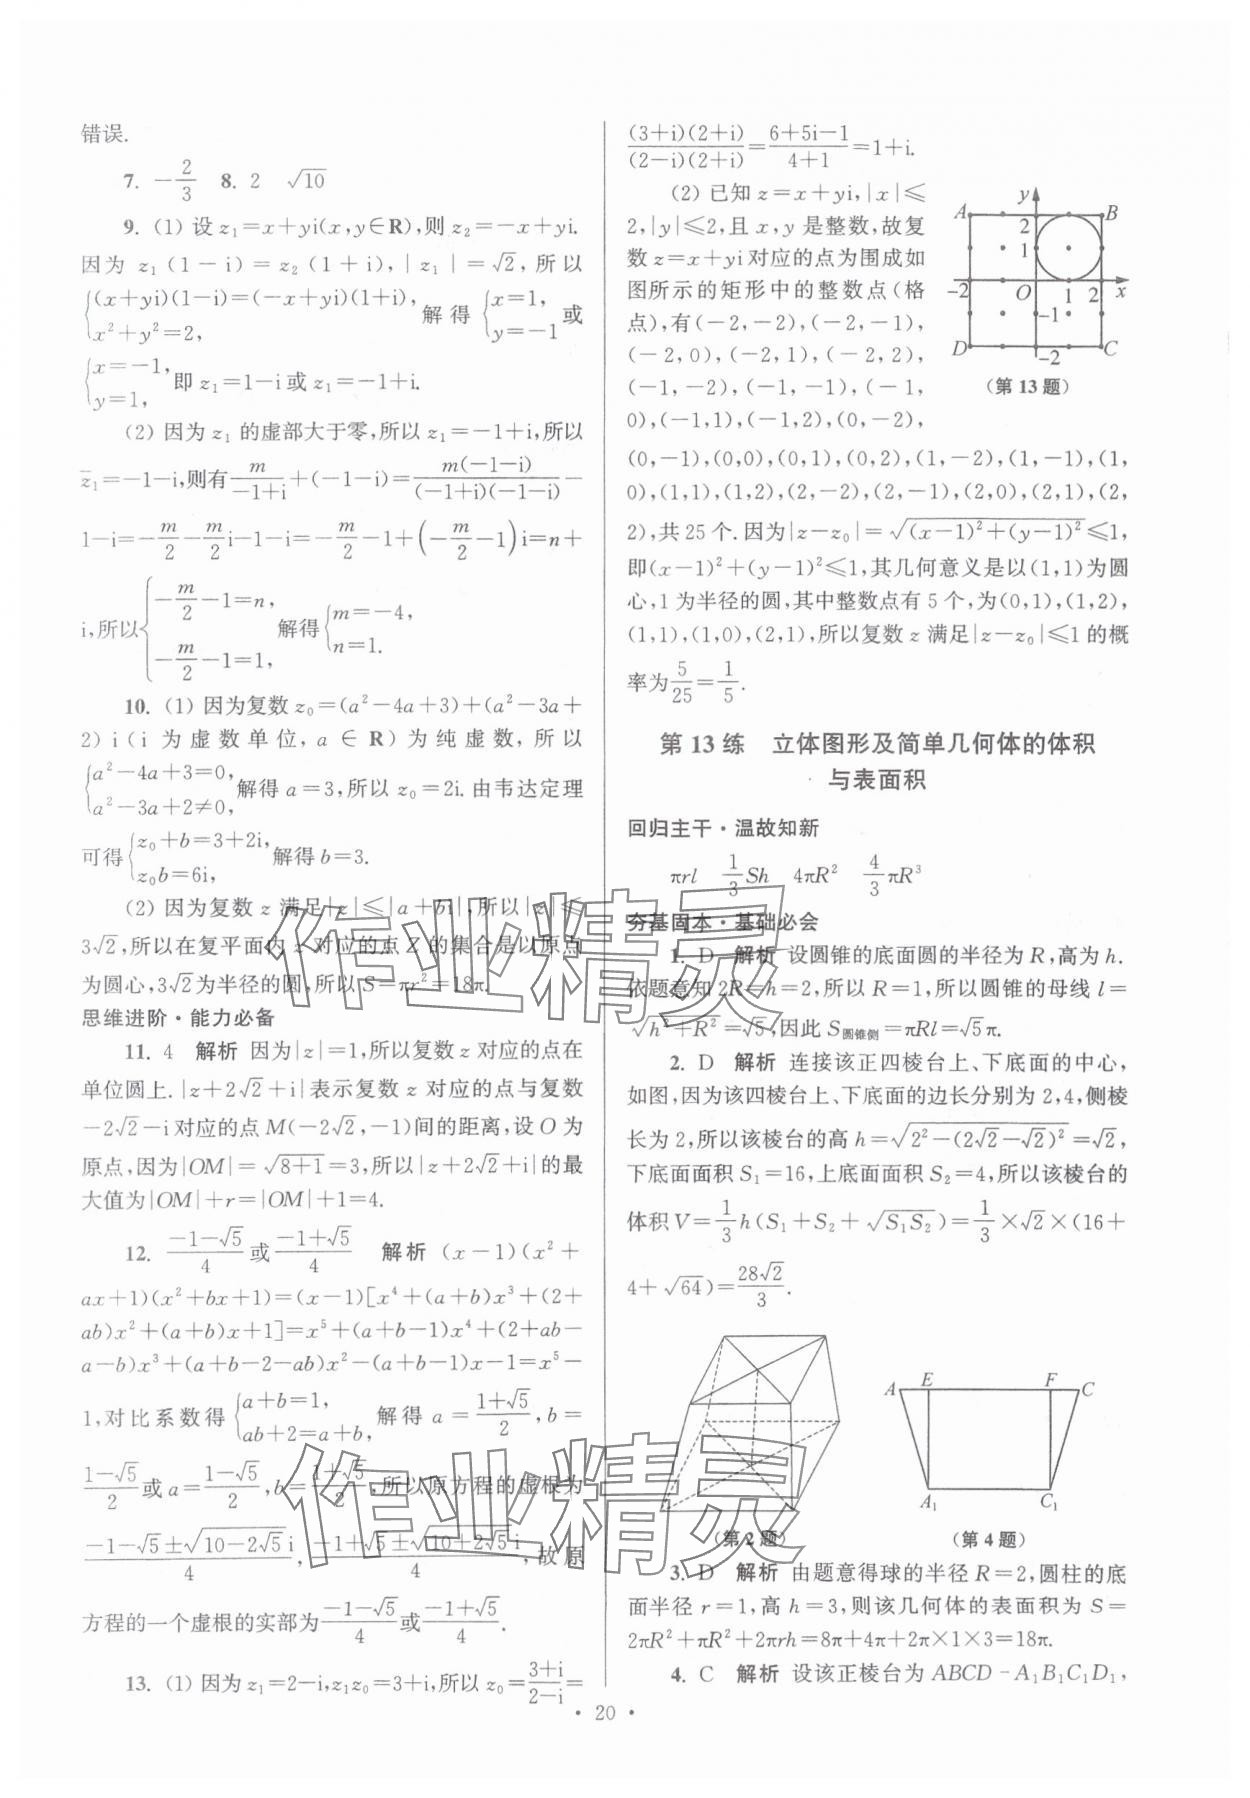 错误.
7. -2/3  8. 2  √10
9. (1) 设 z₁=x+yi(x,y∈R),则 z₂=-x+yi.
因为 z₁(1-i)=z₂(1+i),|z₁|=√2,所以
{(x+yi)(1-i)=(-x+yi)(1+i), x²+y²=2, 解得 {x=1, y=-1 或
{x=-1, y=1, 即 z₁=1-i 或 z₁=-1+i.
(2) 因为 z₁ 的虚部大于零,所以 z₁=-1+i,所以
z̄₁=-1-i,则有 m/(-1+i)+(-1-i)=m(-1-i)/((-1+i)(-1-i))-
1-i=-m/2-m/2i-1-i=-m/2-1+(-m/2-1)i=n+
i,所以{-m/2-1=n, -m/2-1=1, 解得{m=-4, n=1.
10. (1) 因为复数 z₀=(a²-4a+3)+(a²-3a+
2)i(i 为虚数单位,a∈R)为纯虚数,所以
{a²-4a+3=0, a²-3a+2≠0, 解得 a=3,所以 z₀=2i. 由韦达定理
可得{z₀+b=3+2i, z₀b=6i, 解得 b=3.
(2) 因为复数 z 满足|z|≤|a+bi|,所以|z|≤
3√2,所以在复平面内 z 对应的点 Z 的集合是以原点
为圆心,3√2为半径的圆,所以 S=πr²=18π.
思维进阶·能力必备
11. 4 解析 因为|z|=1,所以复数 z 对应的点在
单位圆上.|z+2√2+i|表示复数 z 对应的点与复数
-2√2-i 对应的点 M(-2√2,-1)间的距离,设 O 为
原点,因为|OM|=√(8+1)=3,所以|z+2√2+i|的最
大值为|OM|+r=|OM|+1=4.
12. (-1-√5)/4 或 (-1+√5)/4 解析 (x-1)(x²+
ax+1)(x²+bx+1)=(x-1)[x⁴+(a+b)x³+(2+
ab)x²+(a+b)x+1]=x⁵+(a+b-1)x⁴+(2+ab-
a-b)x³+(a+b-2-ab)x²-(a+b-1)x-1=x⁵-
1,对比系数得 {a+b=1, ab+2=a+b, 解得 a=(1+√5)/2,b=
(1-√5)/2 或 a=(1-√5)/2,b=(1+√5)/2,所以原方程的虚根为
(-1-√5±√(10-2√5)i)/4,(-1+√5±√(10+2√5)i)/4,故原
方程的一个虚根的实部为(-1-√5)/4或(-1+√5)/4.
13. (1) 因为 z₁=2-i,z₁z₀=3+i,所以 z₀=(3+i)/(2-i)=
(3+i)(2+i)/((2-i)(2+i))=(6+5i-1)/(4+1)=1+i.
(2) 已知 z=x+yi,|x|≤
2,|y|≤2,且 x,y 是整数,故复
数 z=x+yi 对应的点为围成如
图所示的矩形中的整数点(格
点),有(-2,-2),(-2,-1),
(-2,0),(-2,1),(-2,2),
(-1,-2),(-1,-1),(-1,
0),(-1,1),(-1,2),(0,-2),
(0,-1),(0,0),(0,1),(0,2),(1,-2),(1,-1),(1,
0),(1,1),(1,2),(2,-2),(2,-1),(2,0),(2,1),(2,
2),共 25 个.因为|z-z₀|=√((x-1)²+(y-1)²)≤1,
即(x-1)²+(y-1)²≤1,其几何意义是以(1,1)为圆
心,1 为半径的圆,其中整数点有 5 个,为(0,1),(1,2),
(1,1),(1,0),(2,1),所以复数 z 满足|z-z₀|≤1 的概
率为5/25=1/5.
y
A
B
2
1
-2
O
1
2
x
-1
D
-2
C
(第 13 题)
第 13 练 立体图形及简单几何体的体积
与表面积
回归主干·温故知新
πrl  1/3Sh  4πR²  4/3πR³
夯基固本·基础必会
1. D 解析 设圆锥的底面圆的半径为 R,高为 h.
依题意知 2R=h=2,所以 R=1,所以圆锥的母线 l=
√(h²+R²)=√5,因此 S圆锥侧=πRl=√5π.
2. D 解析 连接该正四棱台上、下底面的中心,
如图,因为该四棱台上、下底面的边长分别为 2,4,侧棱
长为 2,所以该棱台的高 h=√(2²-(2√2-√2)²)=√2,
下底面面积 S₁=16,上底面面积 S₂=4,所以该棱台的
体积 V=1/3h(S₁+S₂+√(S₁S₂))=1/3×√2×(16+
4+√64)=28√2/3.
(第 2 题)
A
E
F
C
A₁
C₁
(第 4 题)
3. D 解析 由题意得球的半径 R=2,圆柱的底
面半径 r=1,高 h=3,则该几何体的表面积为 S=
2πR²+πR²+2πrh=8π+4π+2π×1×3=18π.
4. C 解析 设该正棱台为 ABCD-A₁B₁C₁D₁,
· 20 ·
作业精灵
作业精灵